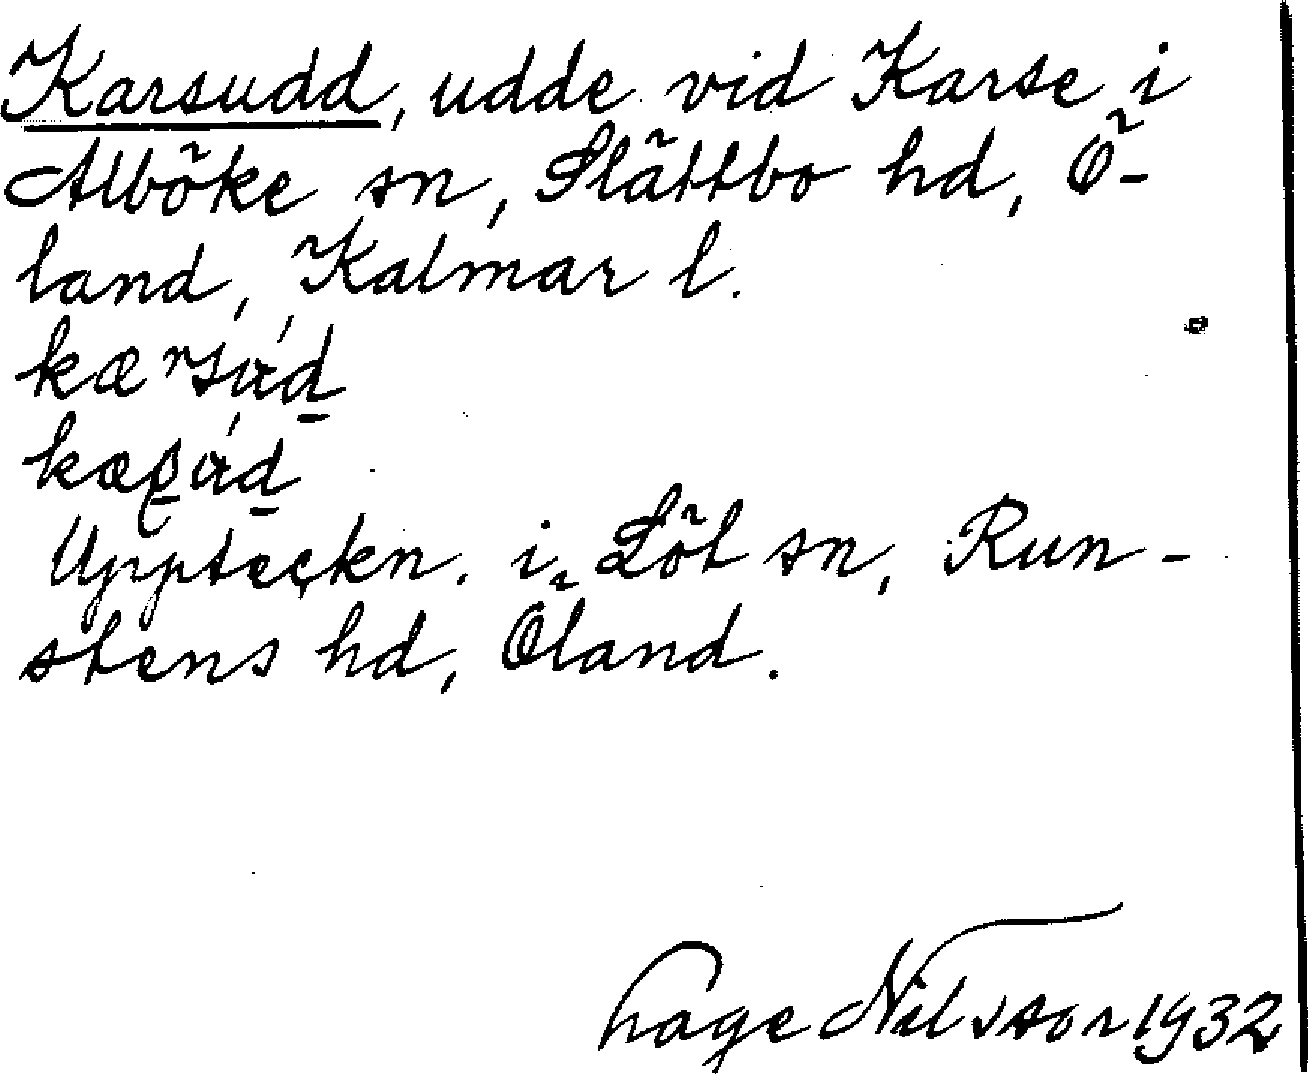 Karsudd, udde vid Karse i
Alböke sn, Slättbo hd, Ö-
land, Kalmar l.
Uppteckn. i Löt sn, Run-
stens hd, Öland.
Hage Nilsson 1932